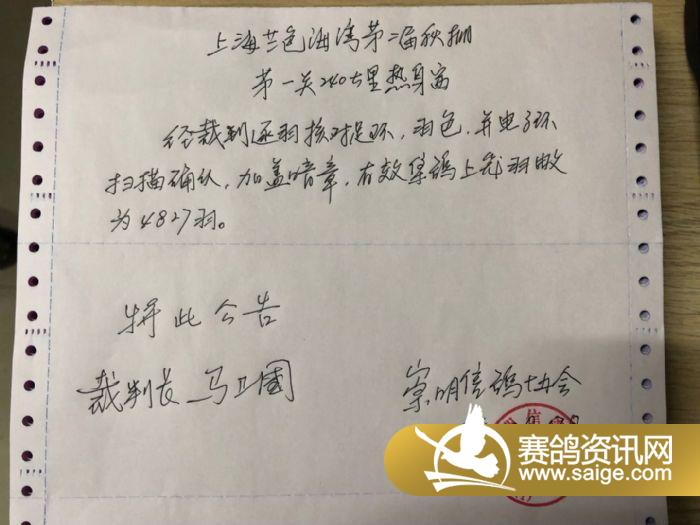 上海兰色海湾第二届秋棚
第一关240公里热身赛
经裁判逐羽核对足环，羽色，并电子环
扫描确认，加盖暗章，有效集鸽上笼羽数
为4827羽。
特此公告
裁判长 马卫国
崇明信鸽协会
信
赛鸽资讯网
www.saige.com